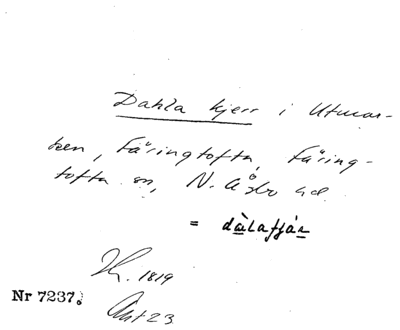 Dahla kjerr i Utmar-
ken, Färingtofta, Färing-
tofta sn, N. Åsbo hd
= dàlafjár
1819
Nr 7237.
Akt 23